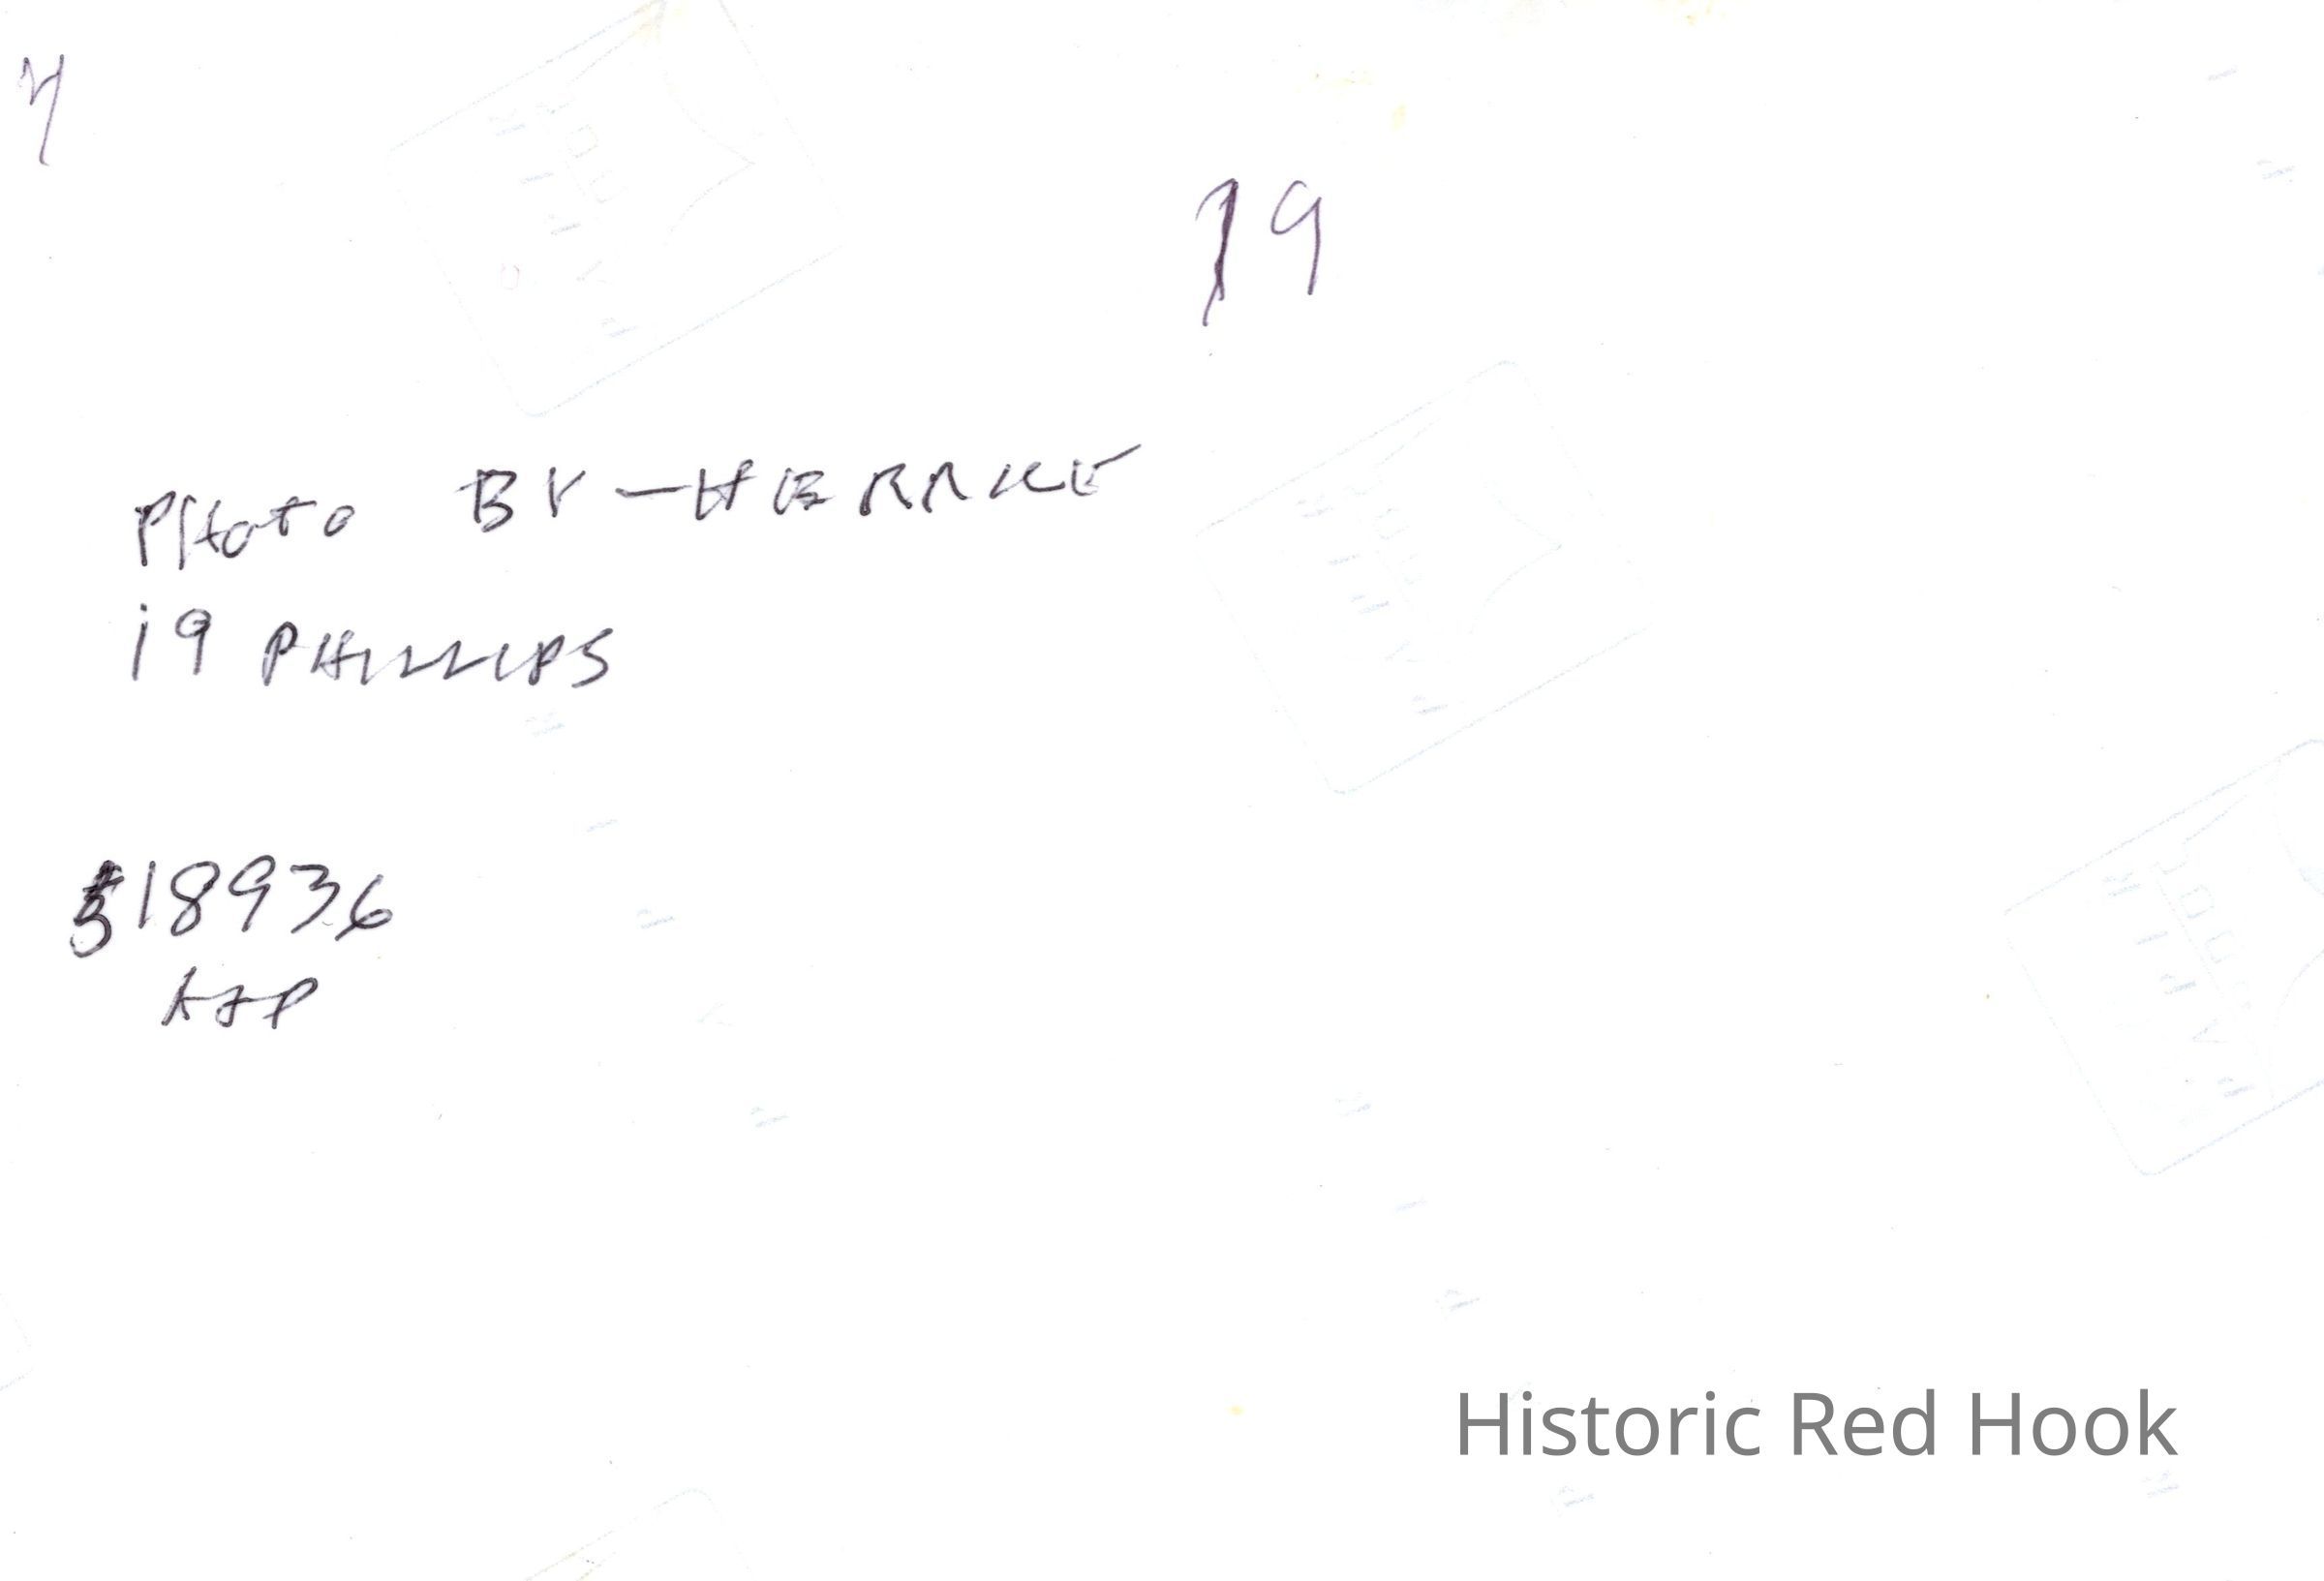 19
PHOTO BY - HERRKE
19 PHILLIPS
518936
Historic Red Hook